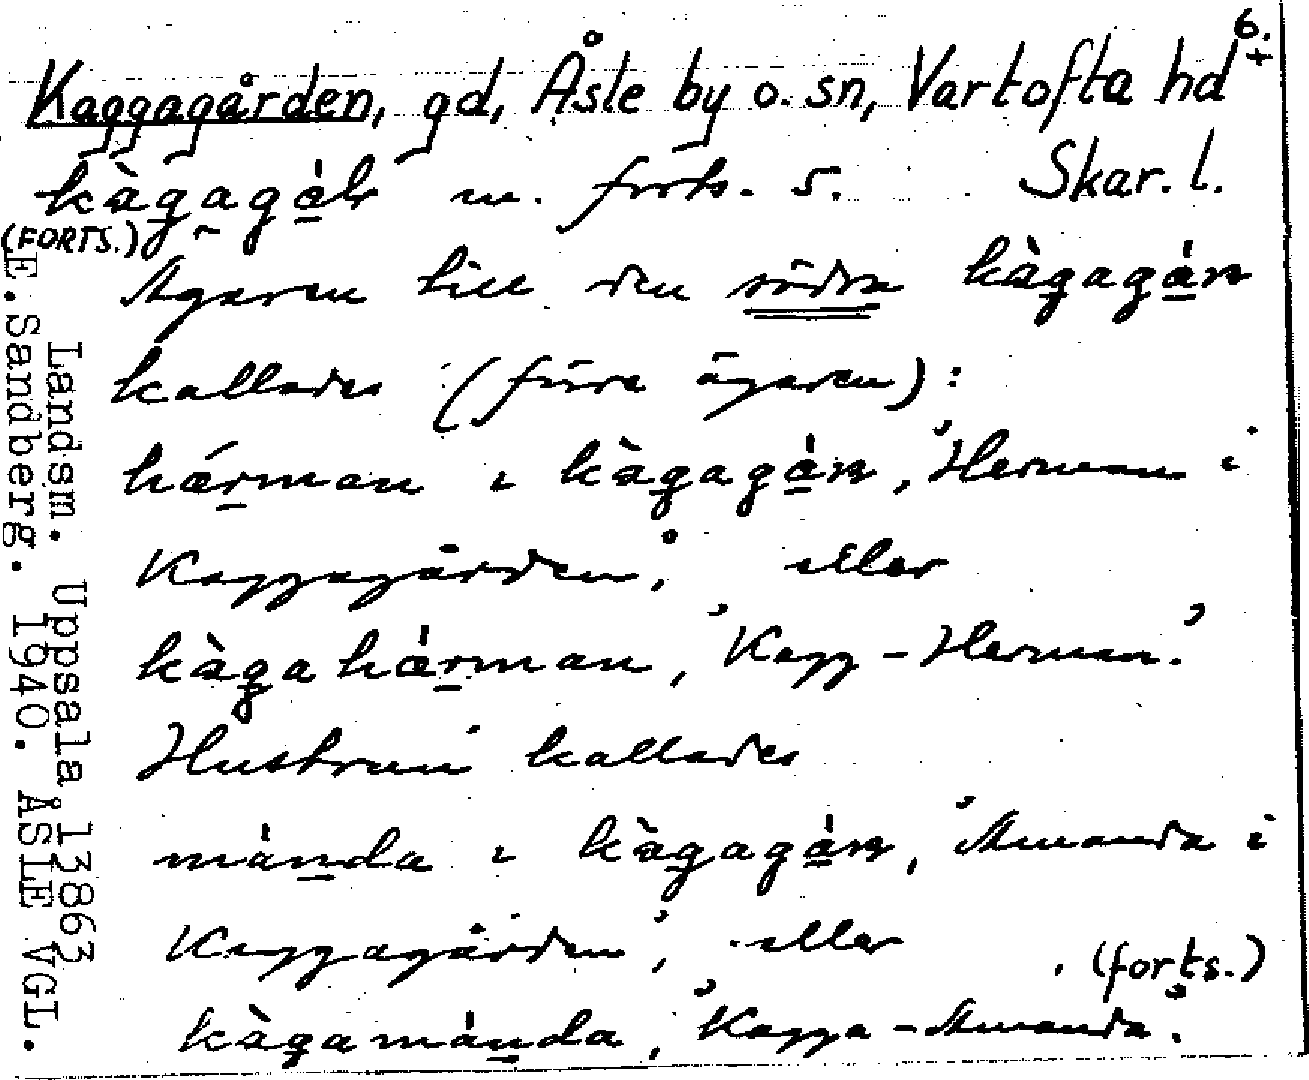 6.
Kaggagården, gd, Åsle by o. sn, Vartofta hd
kàgagáɽ m. forts. 5. Skar. l.
(FORTS.)
Ägaren till den södra kàgagáɳ
kallades (förre ägaren):
hǽrman ɩ kàgagáɳ, 'Herman i
Kaggagården', eller
kàgahǽrman, 'Kagg-Herman.'
Hustrun kallades
mánda ɩ kàgagáɳ, 'Amanda i
Kaggagården', eller
kàgamánda, 'Kagga-Amanda'.
(forts.)
Landsm. Uppsala 13863
E.Sandberg. 1940. ÅSLE VGL.